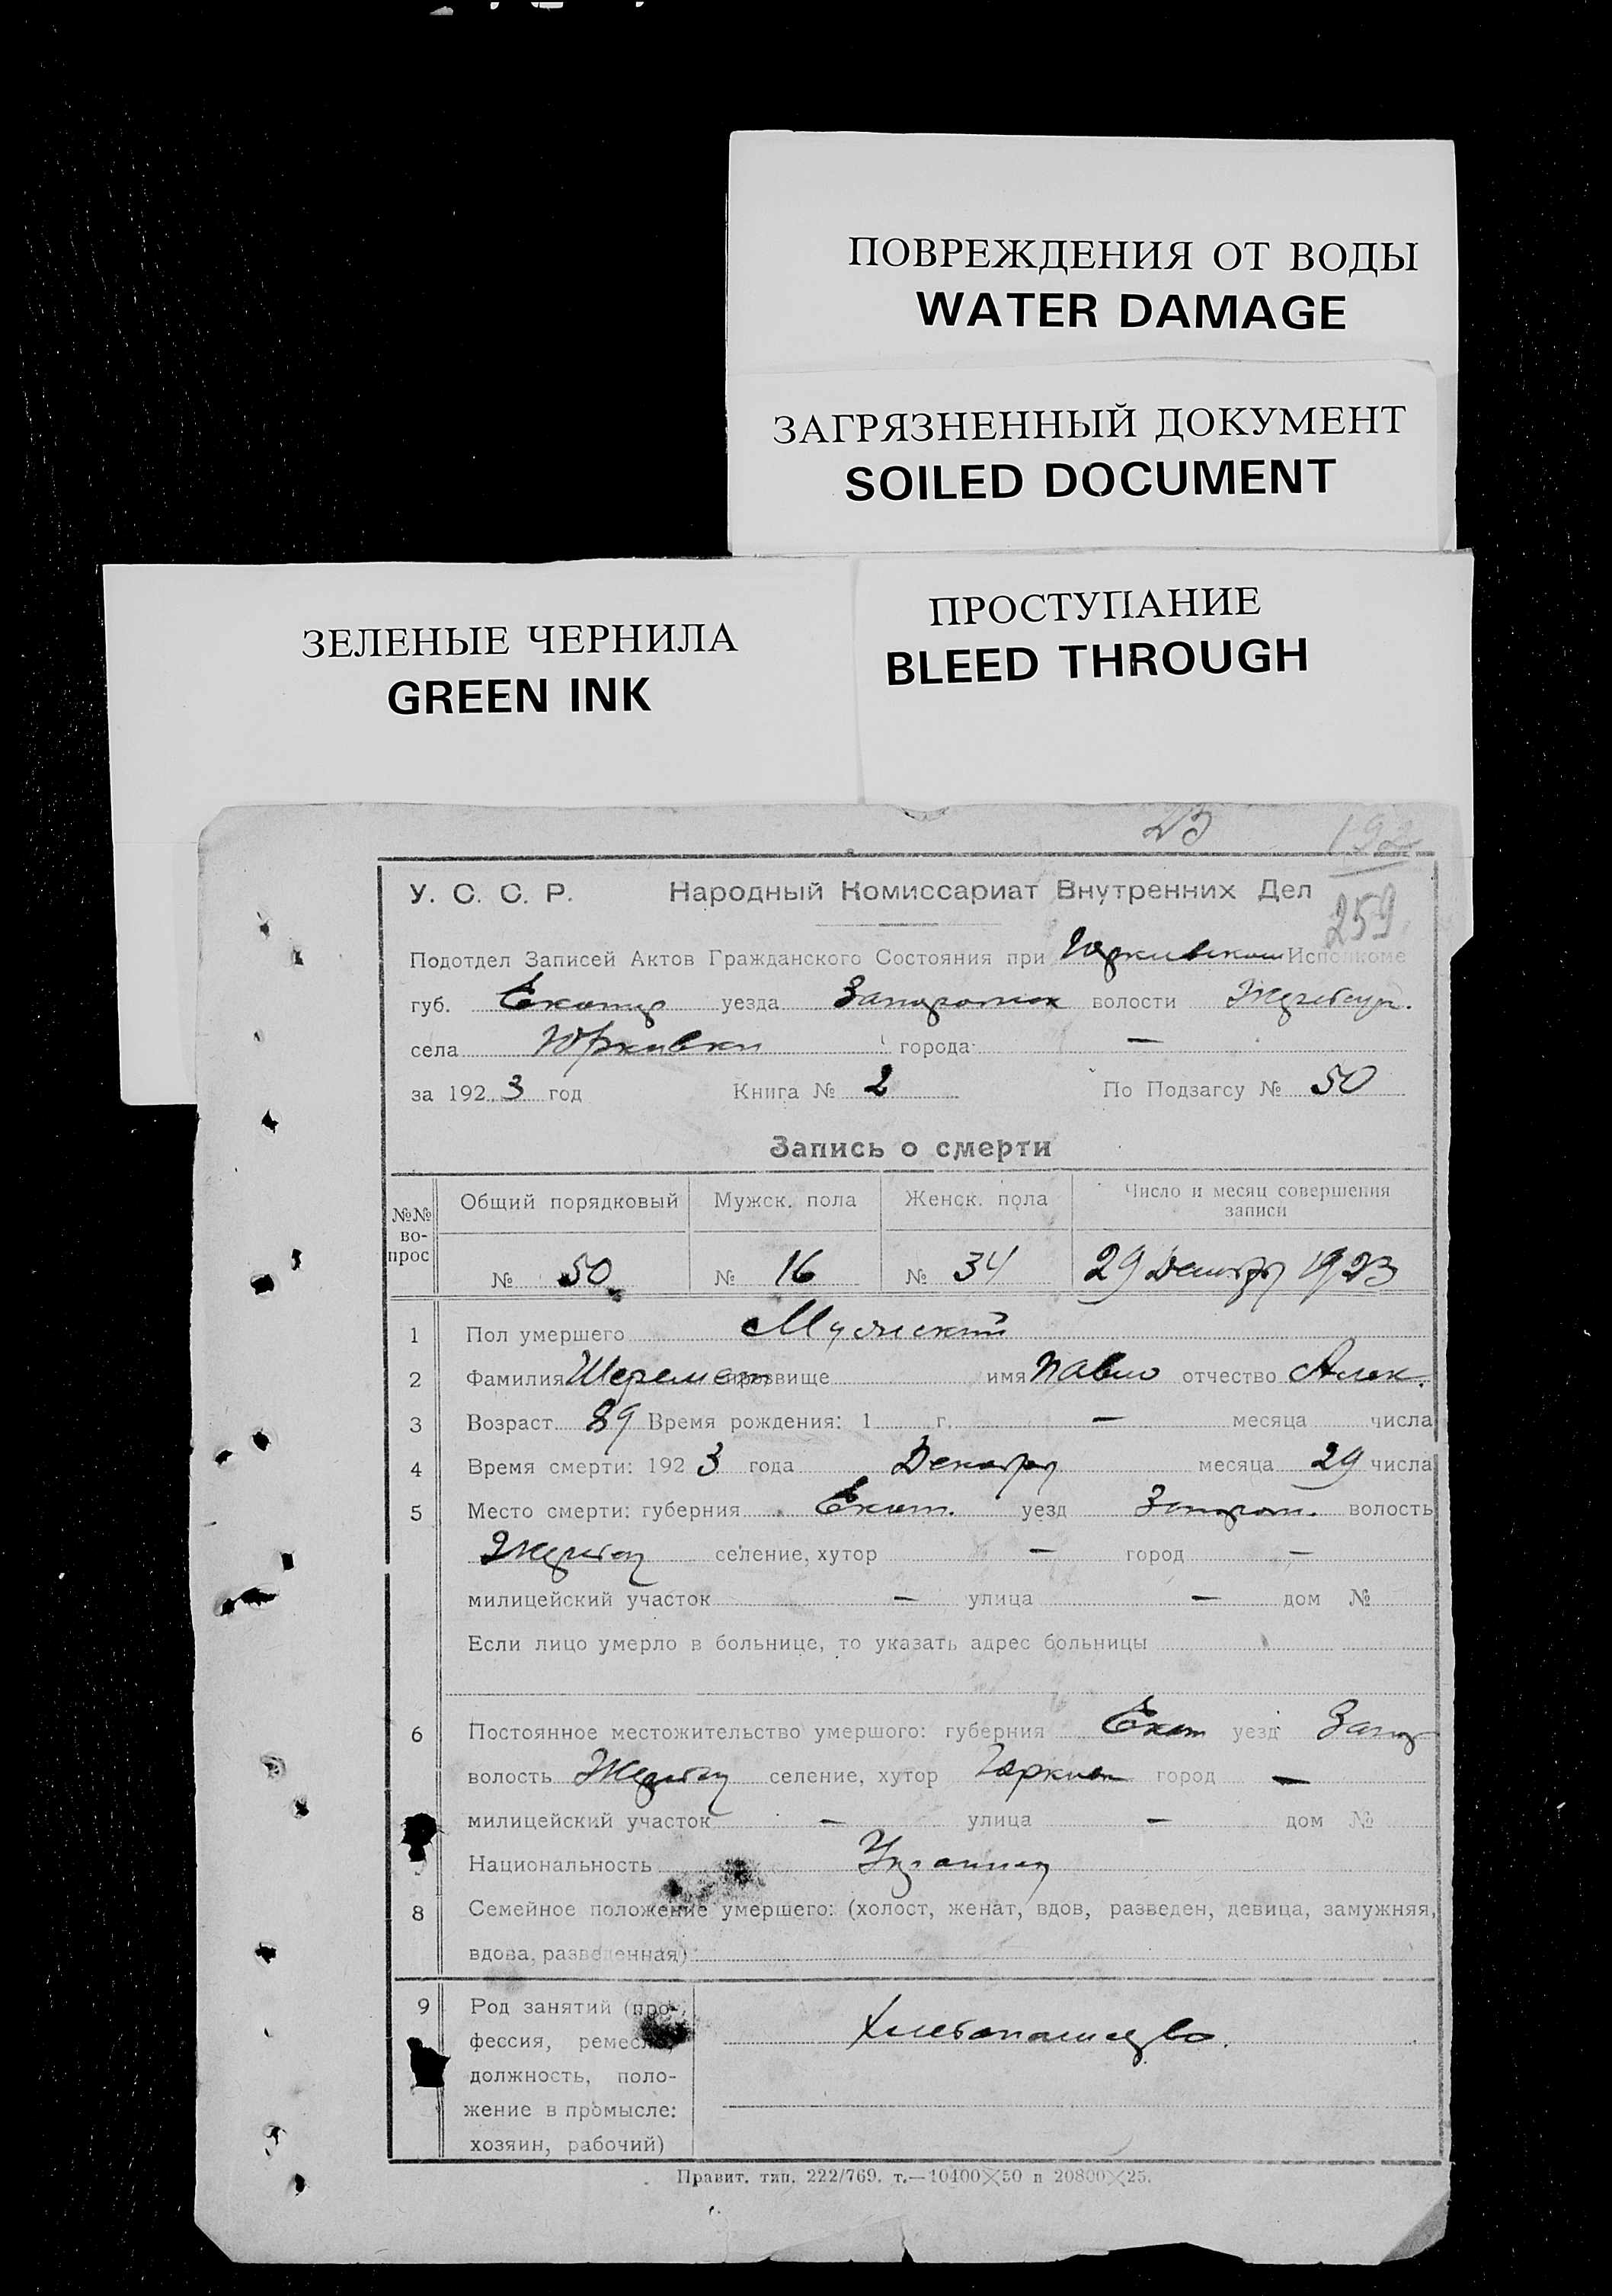 ПОВРЕЖДЕНИЯ ОТ ВОДЫ
WATER DAMAGE
ЗАГРЯЗНЕННЫЙ ДОКУМЕНТ
SOILED DOCUMENT
ЗЕЛЕНЫЕ ЧЕРНИЛА
GREEN INK
ПРОСТУПАНИЕ
BLEED THROUGH
23 192
У. С. С. Р. Народный Комиссариат Внутренних Дел
259
Подотдел Записей Актов Гражданского Состояния при Юркивском Исполкоме
губ. Екатер уезда волости
села Юркивки города —
за 1923 год Книга № 2 По Подзагсу № 50
Запись о смерти
№№ во-прос Общий порядковый Мужск. пола Женск. пола Число и месяц совершения записи
№ 50 № 16 № 34 29 Декабря 1923
1 Пол умершего Мужской
2 Фамилия Шеремет прозвище имя Павло отчество Алек.
3 Возраст 89 Время рождения: 1 г. — месяца числа
4 Время смерти: 1923 года Декабря месяца 29 числа
5 Место смерти: губерния Екат. уезд Запорож. волость
селение, хутор — город —
милицейский участок — улица — дом №
Если лицо умерло в больнице, то указать адрес больницы
6 Постоянное местожительство умершого: губерния Екат уезд Запор
волость селение, хутор город —
милицейский участок — улица — дом №
Национальность
8 Семейное положение умершего: (холост, женат, вдов, разведен, девица, замужняя,
вдова, разведенная)
9 Род занятий (про-
фессия, ремесло, Хлебопашество.
должность, поло-
жение в промысле:
хозяин, рабочий)
Правит. тип. 222/769. т.—10400×50 п 20800×25.